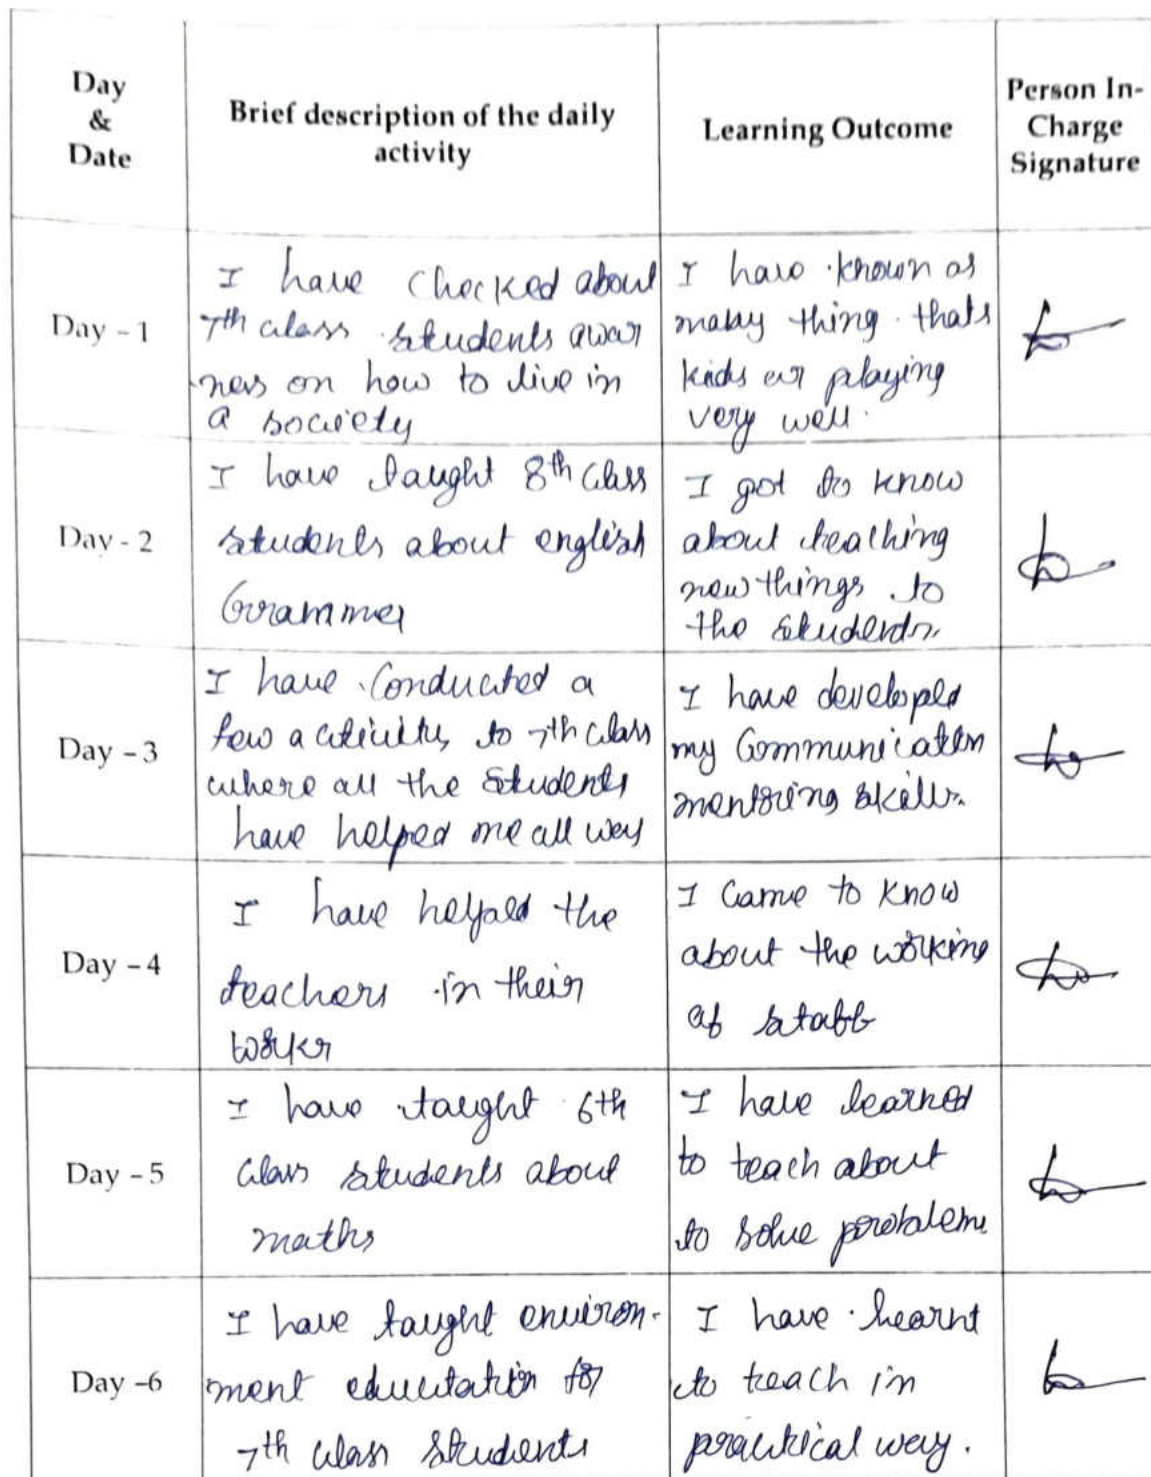 Day
&
Date
Brief description of the daily
activity
Learning Outcome
Person In-
Charge
Signature
Day - 1
I have checked about
7th class students awar
ness on how to live in
a society
I have known as
many thing thats
kids are playing
very well.
Day - 2
I have taught 8th class
students about english
Grammer
I got to know
about teaching
new things to
the students.
Day - 3
I have conducted a
few activity to 7th class
where all the students
have helped me all way
I have developed
my Communication
mentoring skills.
Day - 4
I have helped the
teachers in their
I came to know
about the working
of staff
Day - 5
I have taught 6th
class students about
maths
I have learned
to teach about
to solve problem
Day -6
I have taught environ-
ment education for
7th class students
I have learnt
to teach in
practical way.